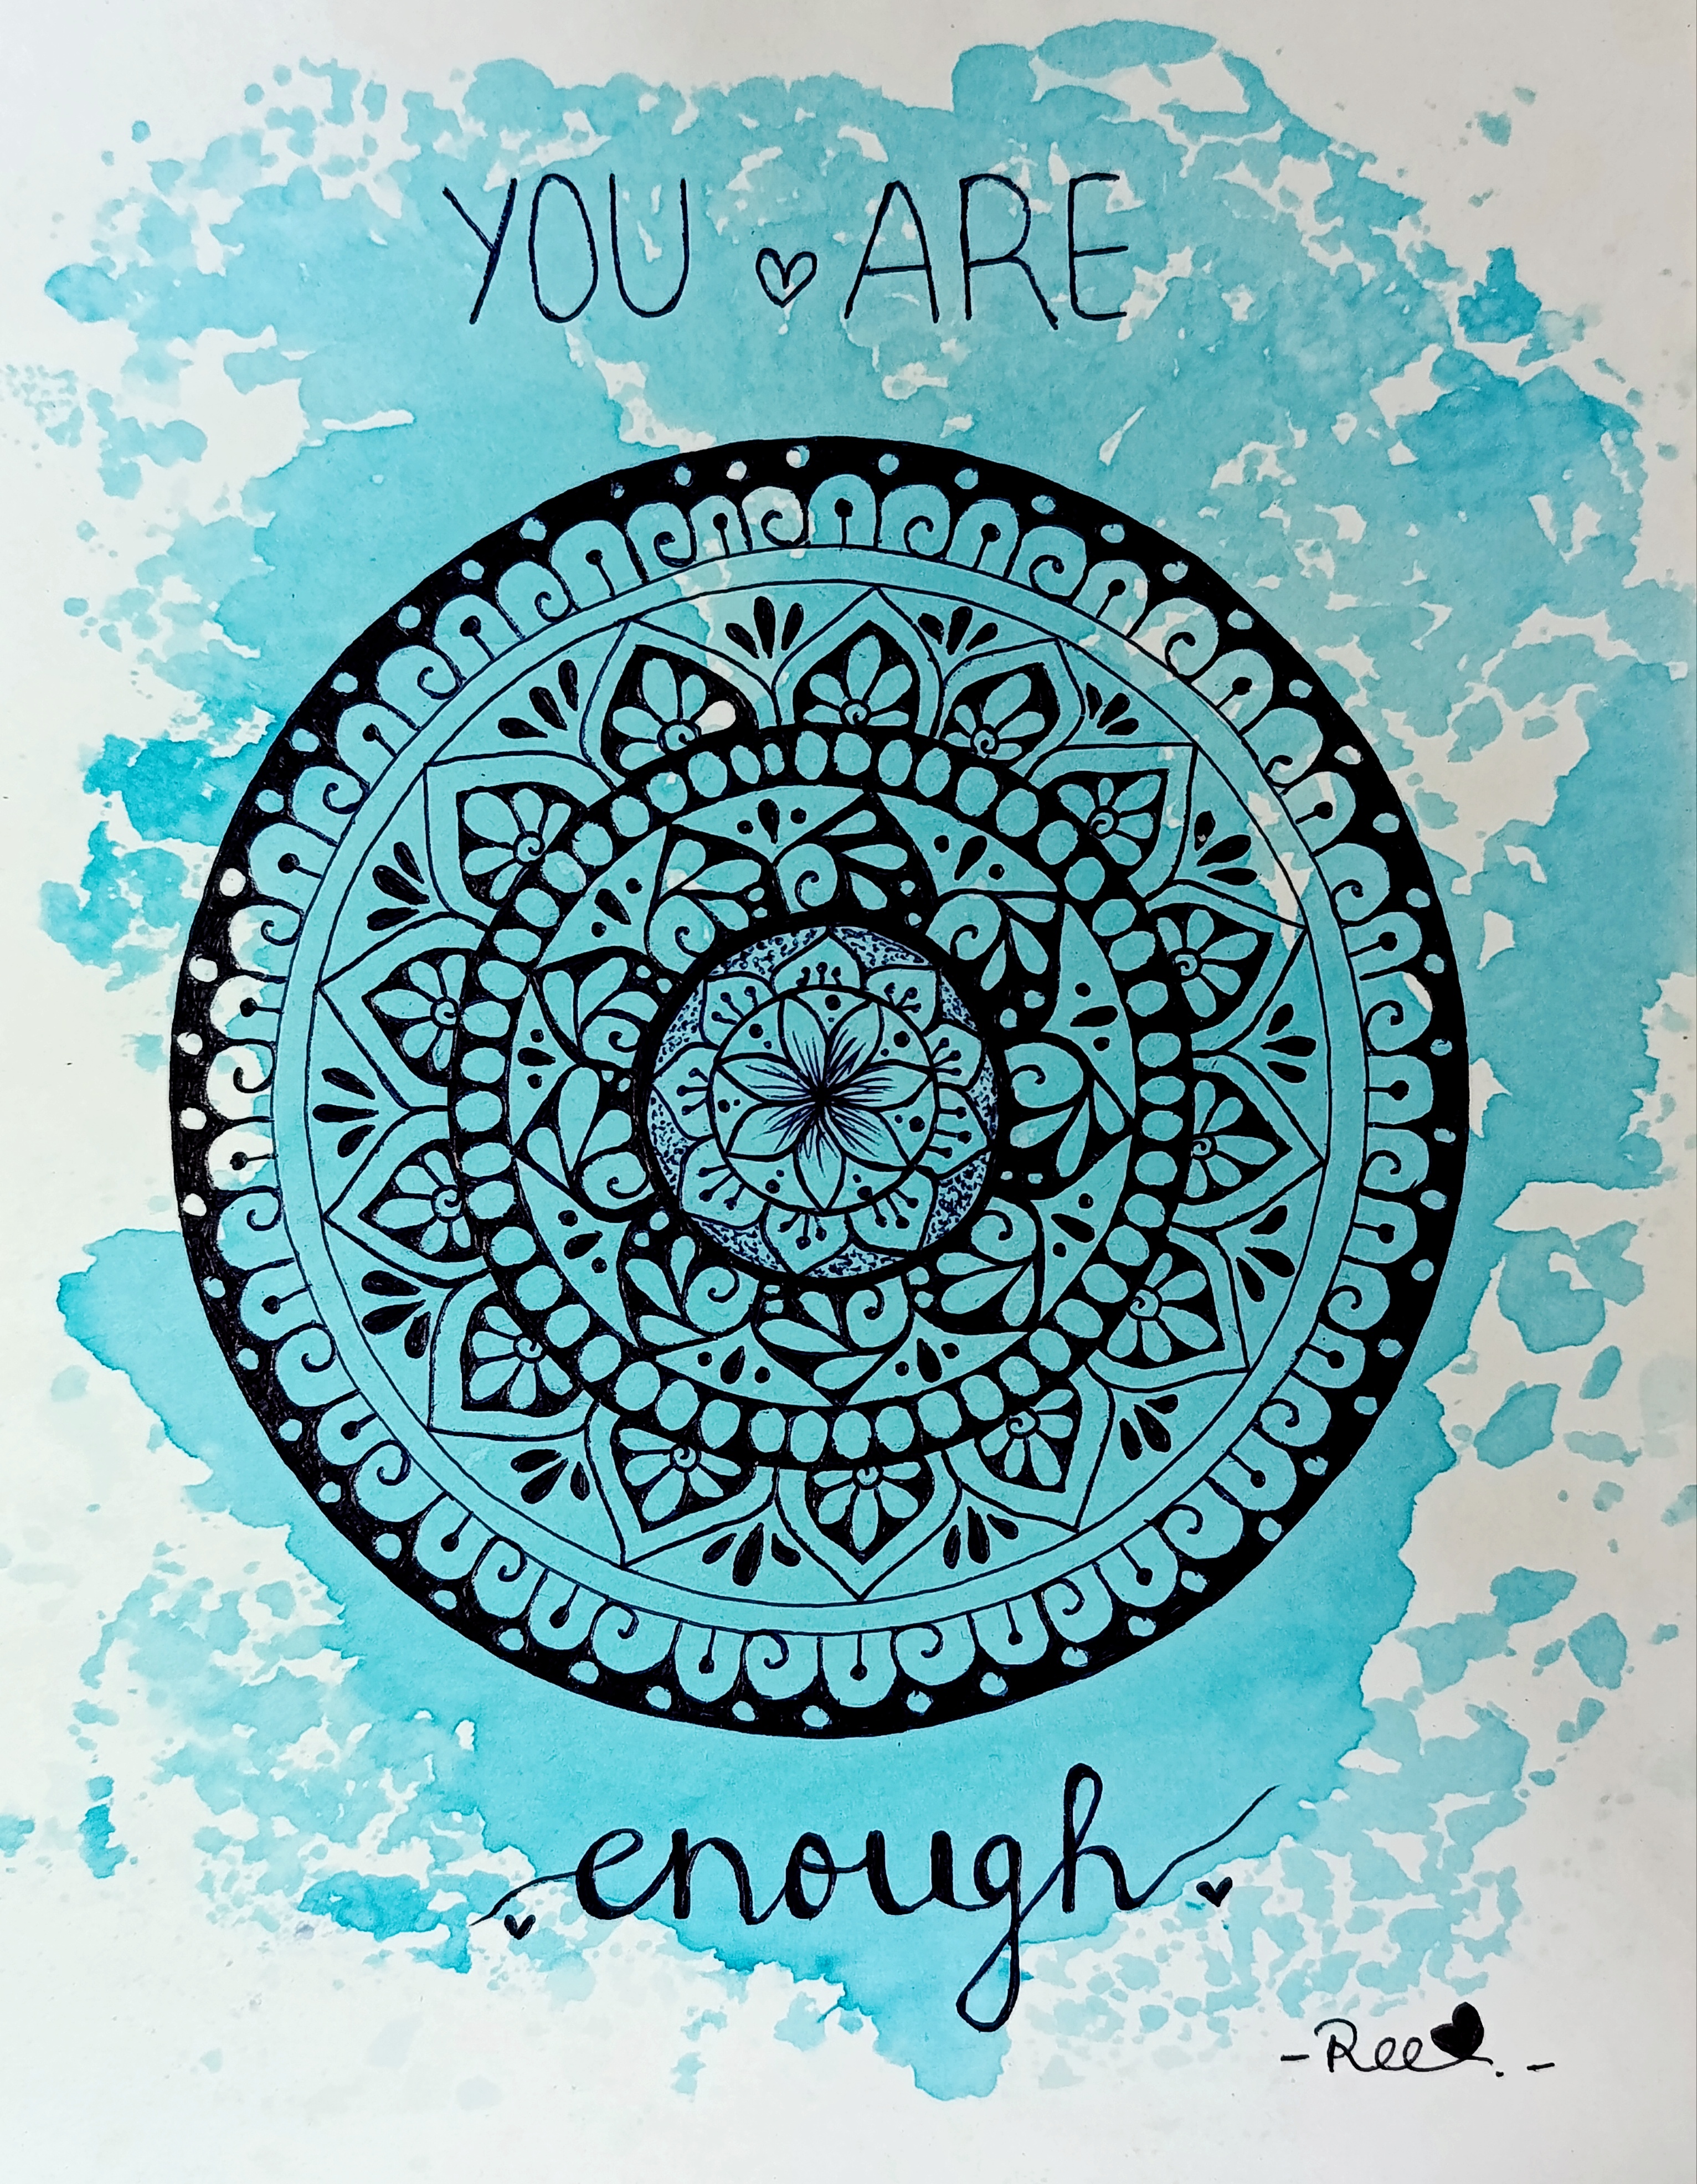 YOU ♡ ARE
enough
-Ree. -